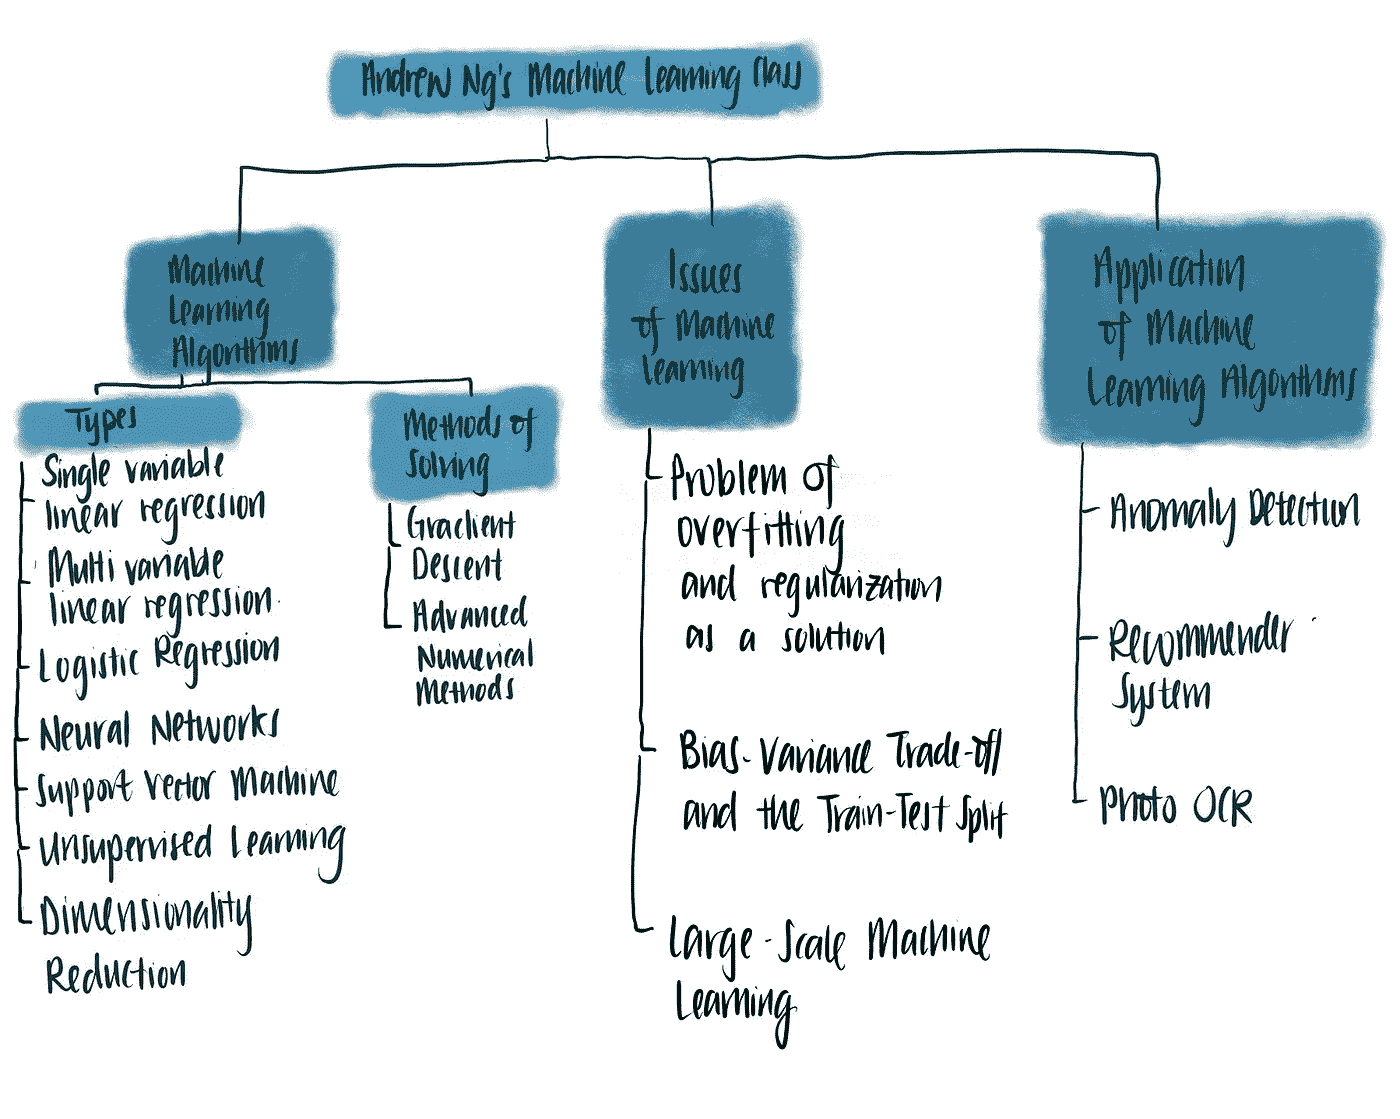 Andrew Ng's Machine Learning Class
Machine
Learning
Algorithms
Types
Single variable
linear regression
Multi variable
linear regression
Logistic Regression
Neural Networks
Support Vector Machine
Unsupervised Learning
Dimensionality
Reduction
Methods of
Solving
Gradient
Descent
Advanced
Numerical
Methods
Issues
of Machine
Learning
Problem of
overfitting
and regularization
as a solution
Bias-Variance Trade-off
and the Train-Test Split
Large-Scale Machine
Learning
Application
of Machine
Learning Algorithms
Anomaly Detection
Recommender
System
Photo OCR